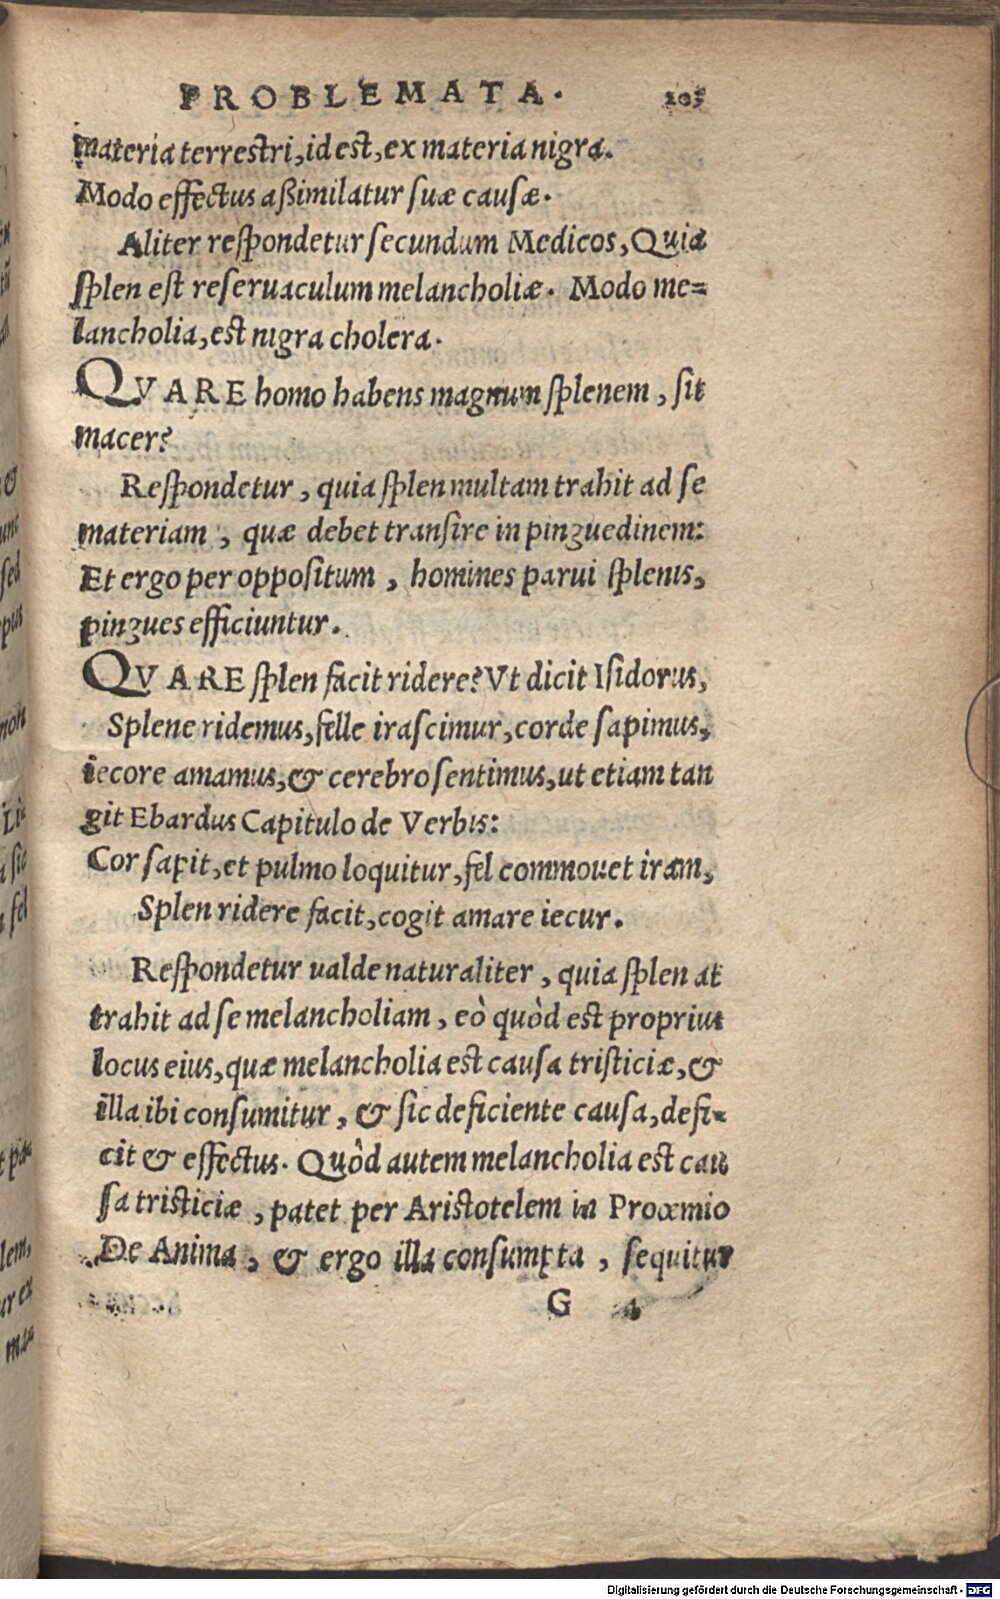 PROBLEMATA. 103
materia terrestri, id est, ex materia nigra.
Modo effectus aßimilatur suæ causæ.
Aliter respondetur secundum Medicos, Quia
splen est reseruaculum melancholiæ. Modo me-
lancholia, est nigra cholera.
QVARE homo habens magnum splenem, sit
macer?
Respondetur, quia splen multam trahit ad se
materiam, quæ debet transire in pinguedinem:
Et ergo per oppositum, homines parui splenis,
pingues efficiuntur.
QVARE splen facit ridere? Vt dicit Isidorus,
Splene ridemus, felle irascimur, corde sapimus,
iecore amamus, & cerebro sentimus, ut etiam tan
git Ebardus Capitulo de Verbis:
Cor sapit, et pulmo loquitur, fel commouet iram,
Splen ridere facit, cogit amare iecur.
Respondetur ualde naturaliter, quia splen at
trahit ad se melancholiam, eò quòd est proprius
locus eius, quæ melancholia est causa tristiciæ, &
illa ibi consumitur, & sic deficiente causa, defi-
cit & effectus. Quòd autem melancholia est cau
sa tristiciæ, patet per Aristotelem in Proœmio
De Anima, & ergo illa consumpta, sequitur
G 4
Digitalisierung gefördert durch die Deutsche Forschungsgemeinschaft - DFG